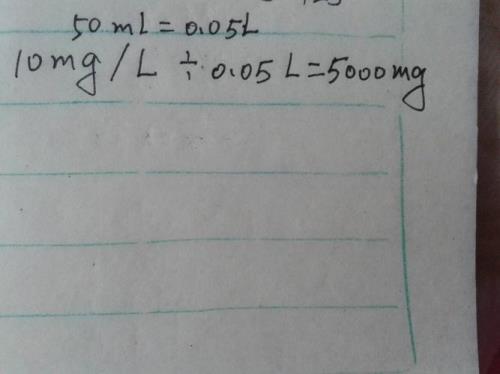 50 mL = 0.05L
10 mg/L ÷ 0.05 L = 5000 mg